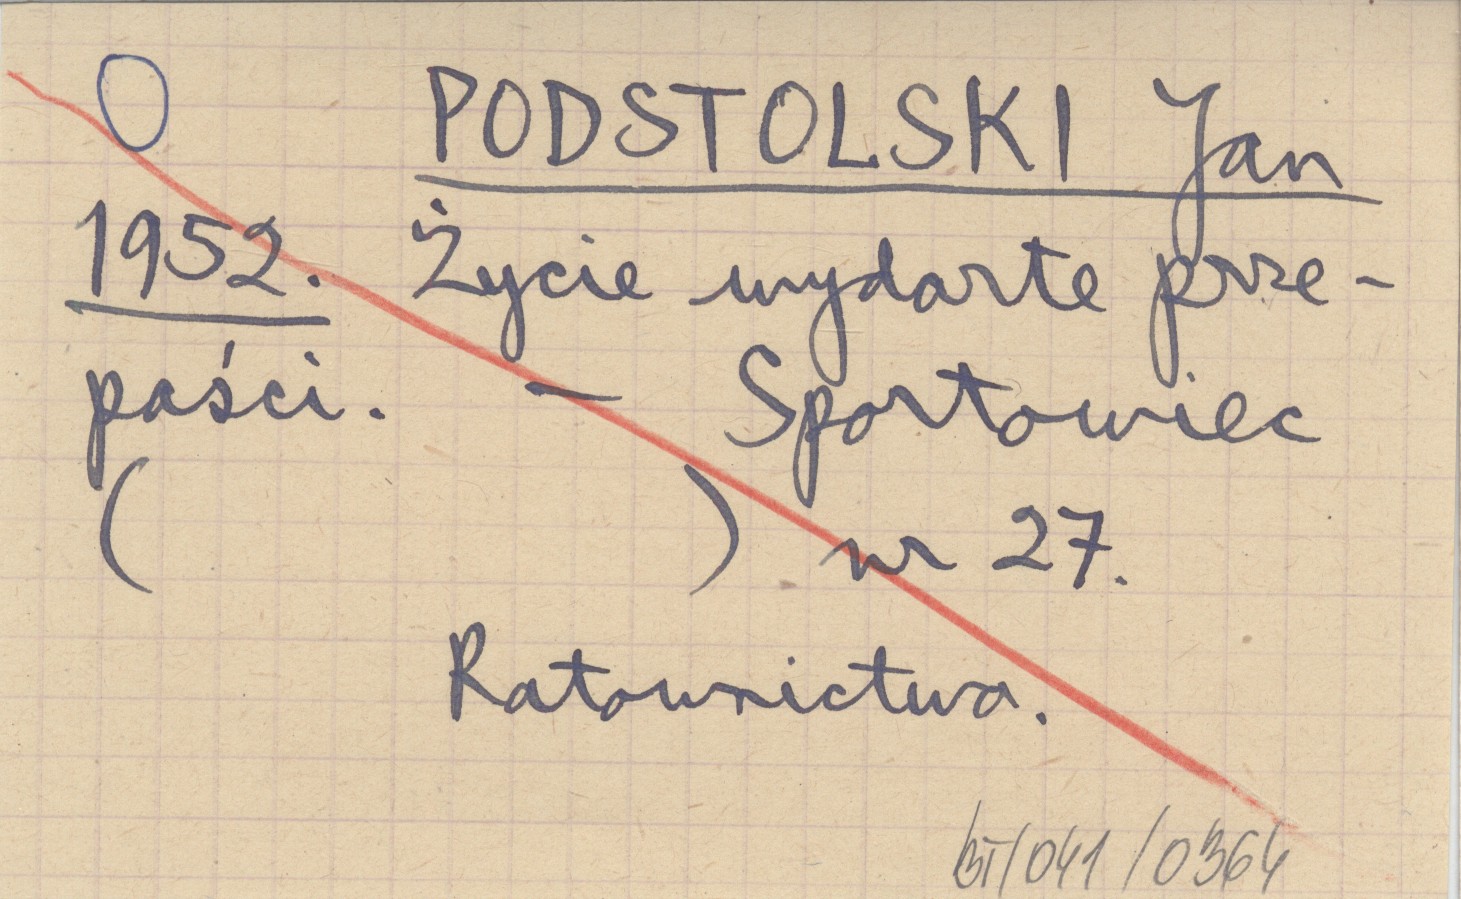 O PODSTOLSKI Jan
1952. Życie wydarte prze-
paści. — Sportowiec
( ) nr 27.
Ratownictwa.
BT/041/0364